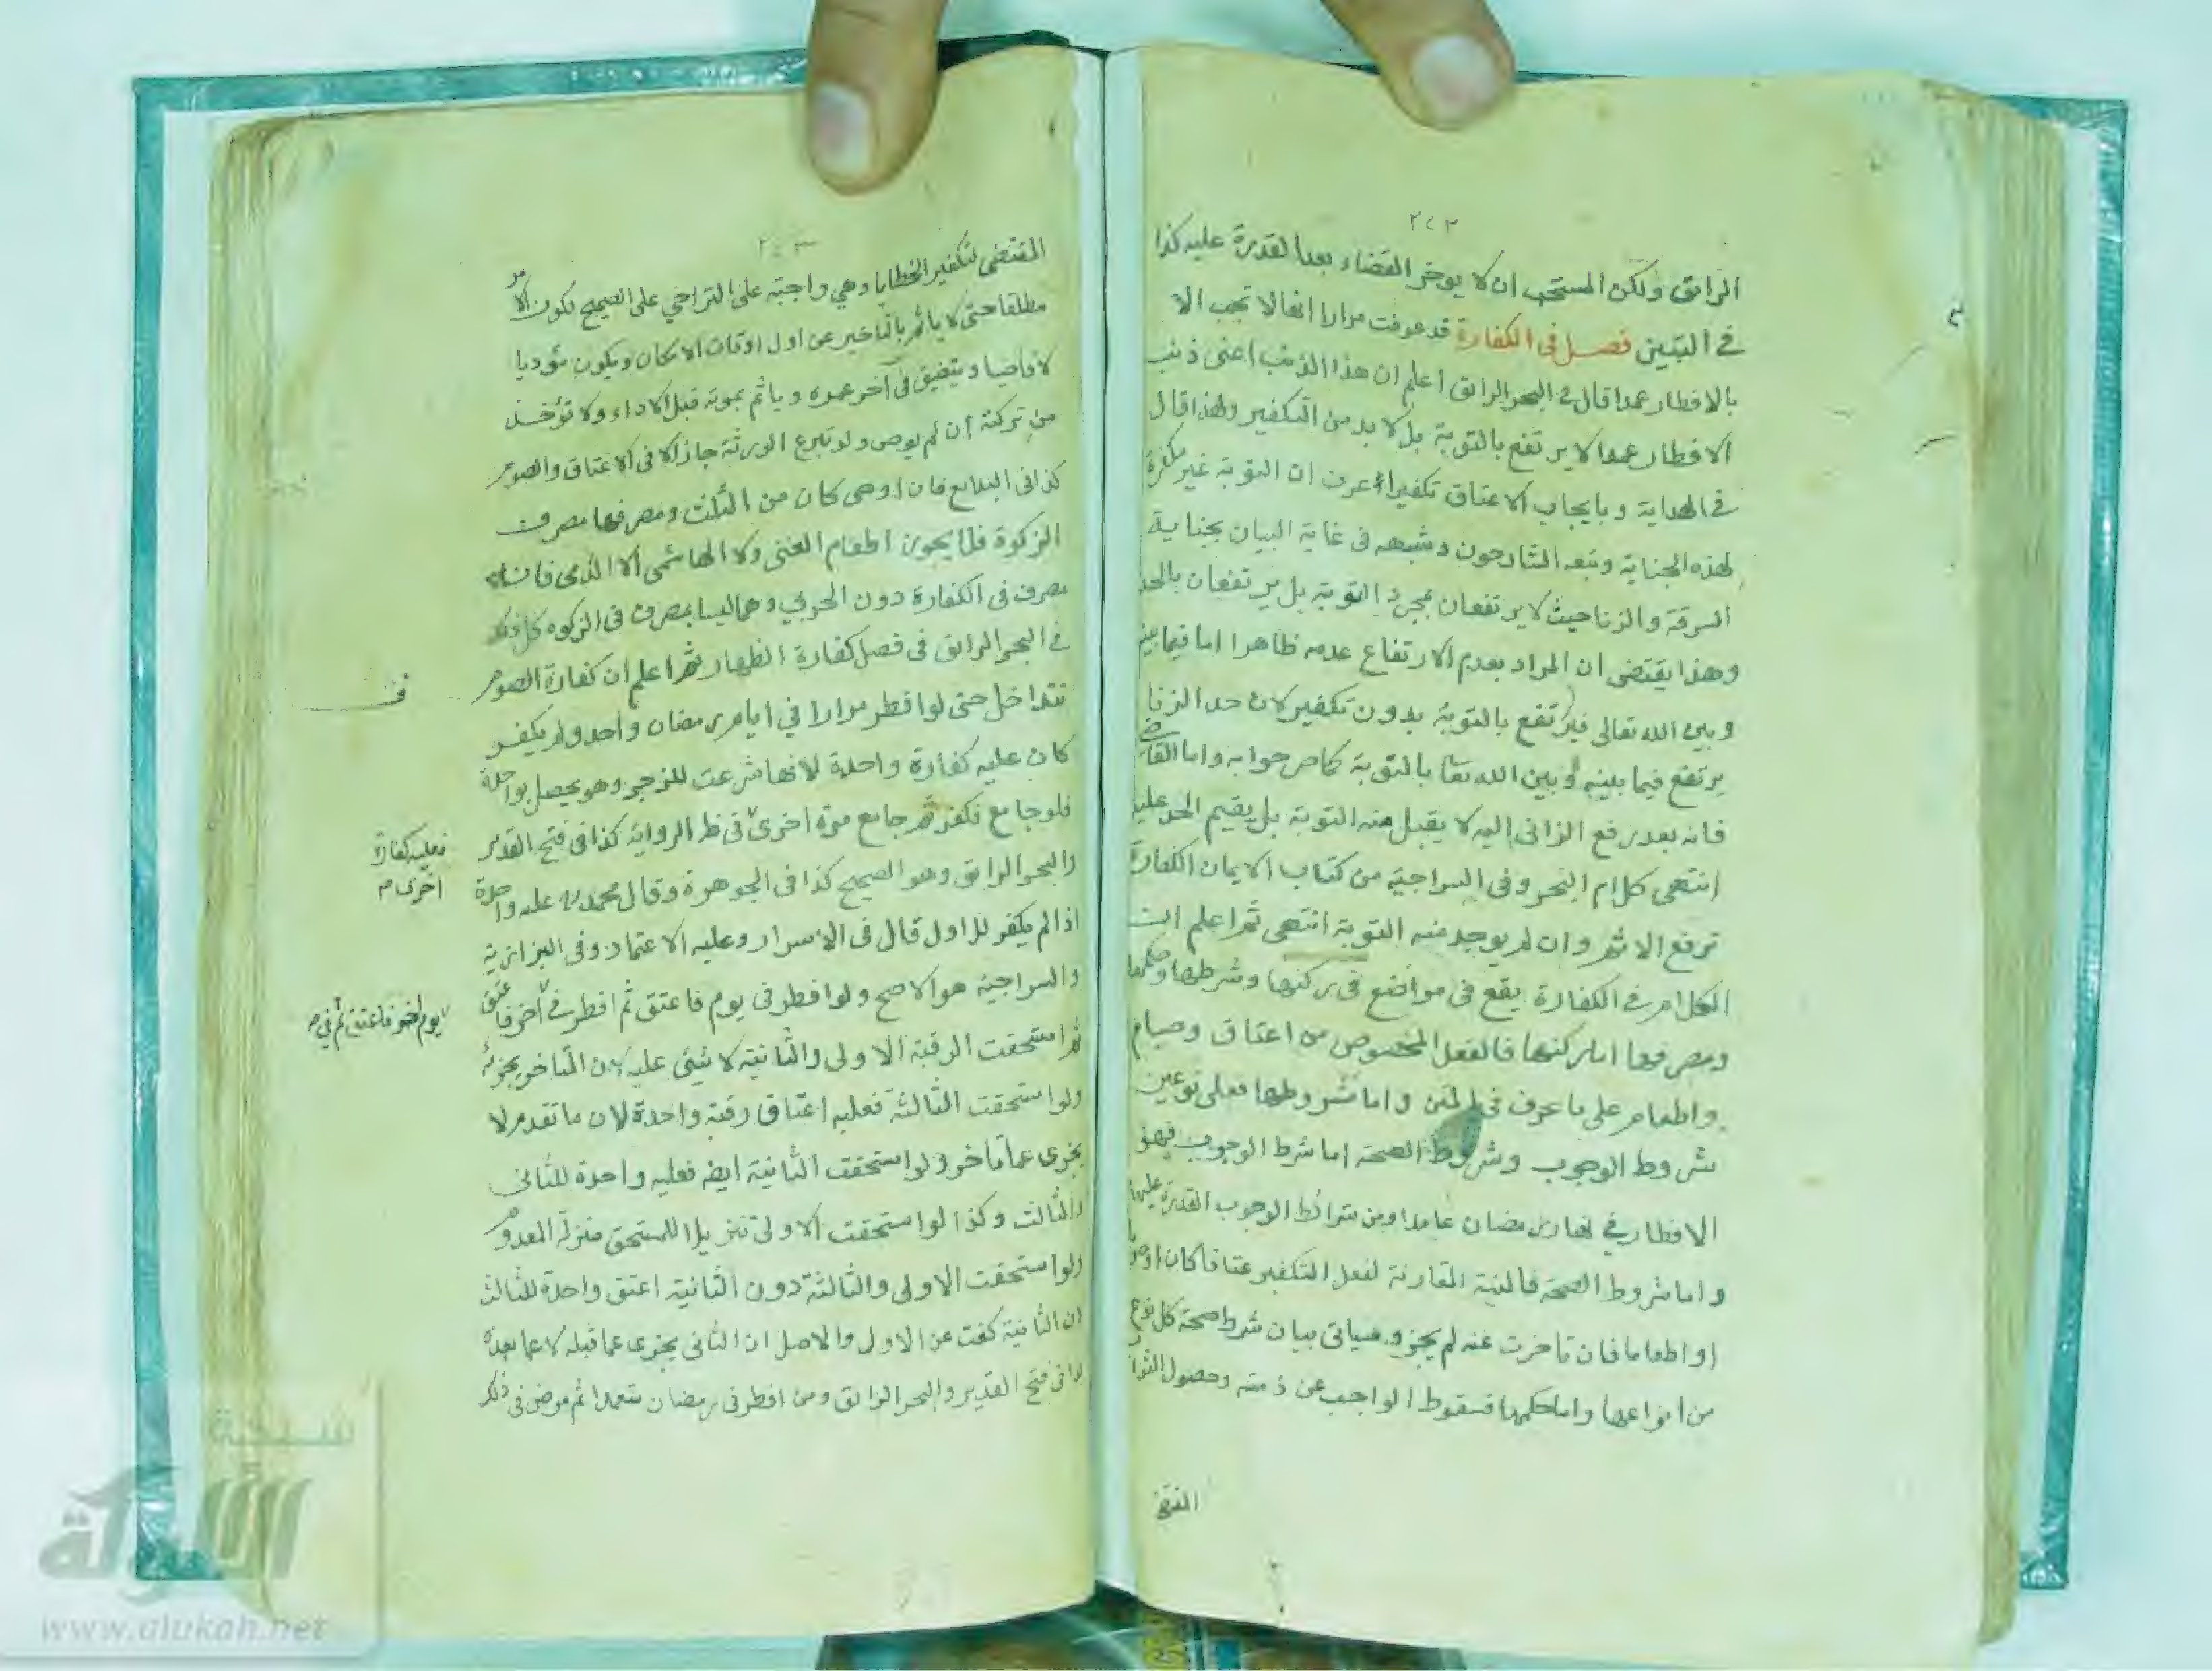 ٢٤٢
الرائق ولكن المستحب ان لا يوخر القضاء بعد القدرة عليه كذا
في التبيين فصل فى الكفارة قد عرفت مرارا انها لا تجب الا
بالافطار عمدا قال في البحر الرائق اعلم ان هذا الذنب اعنى ذنب
الافطار عمدا لا يرتفع بالتوبة بل لا بد من التكفير ولهذا قال
في الهداية وبايجاب الاعتاق تكفيرا عرف ان التوبة غير مكفرة
لهذه الجناية وتبعه الشارحون وشبهه فى غاية البيان بجناية
السرقة والزنا حيث لا يرتفعان بمجرد التوبة بل يرتفعان بالحد
وهذا يقتضى ان المراد بعدم الارتفاع عدمه ظاهرا اما فيما بينه
وبين الله تعالى فيرتفع بالتوبة بدون تكفير لان حد الزنا
يرتفع فيما بينه وبين الله تعا بالتوبة كما صرحوا به واما القاضى
فانه بعد رفع الزانى اليه لا يقبل منه التوبة بل يقيم الحد عليه
انتهى كلام البحر وفى السراجية من كتاب الايمان الكفارة
ترفع الاثم وان لم يوجد منه التوبة انتهى ثم اعلم ان
الكلام في الكفارة يقع فى مواضع فى ركنها وشرطها وحكمها
ومصرفها اما ركنها فالفعل المخصوص من اعتاق وصيام
واطعام على ما عرف فى المتن واما شروطها فعلى نوعين
شروط الوجوب وشروط الصحة اما شرط الوجوب فهو
الافطار في نهار رمضان عامدا ومن شرائط الوجوب القدرة عليها
واما شروط الصحة فالنية المقارنة لفعل التكفير عتاقا كان او صوما
او اطعاما فان تاخرت عنه لم يجز وسياتى بيان شرط صحة كل نوع
من انواعها واما حكمها فسقوط الواجب عن ذمته وحصول الثواب
المقتضى
٢٤٣
المقتضى لتكفير الخطايا وهي واجبة على التراخي على الصحيح لكون الامر
مطلقا حتى لا ياثم بالتاخير عن اول اوقات الامكان ويكون مؤديا
لا قاضيا ويتضيق في آخر عمره وياثم بموته قبل الاداء ولا تؤخذ
من تركته ان لم يوص ولو تبرع الورثة جاز الا فى الاعتاق والصوم
كذا فى البدايع فان اوصى كان من الثلث ومصرفها مصرف
الزكوة فلا يجوز اطعام الغنى ولا الهاشمى الا الذمى فانه
مصرف فى الكفارة دون الحربي وهما ليسا بمصرف فى الزكوه كل ذلك
في البحر الرائق فى فصل كفارة الظهار ثم اعلم ان كفارة الصوم
تتداخل حتى لو افطر مرارا في ايام رمضان واحد ولم يكفر
كان عليه كفارة واحدة لانها شرعت للزجر وهو يحصل بواحدة
فلو جامع فكفر ثم جامع مرة اخرى فى ظ الرواية كذا فى فتح القدير
فعليه كفارة
اخرى م
والبحر الرائق وهو الصحيح كذا فى الجوهرة وقال محمد عليه واحدة
اذا لم يكفر للاول قال فى الاسرار وعليه الاعتماد وفى البزازية
والسراجية هو الاصح ولو افطر فى يوم فاعتق ثم افطر في آخر فاعتق
يوم اخر فاعتق ثم في م
ثم استحقت الرقبة الاولى والثانية لا شيئ عليه لان المتاخر يجزئه
ولو استحقت الثالثة فعليه اعتاق رقبة واحدة لان ما تقدم لا
يجزى عما تاخر ولو استحقت الثانية ايضا فعليه واحدة للثانى
والثالث وكذا لو استحقت الاولى تنزيلا للمستحق منزلة المعدوم
ولو استحقت الاولى والثالثة دون الثانية اعتق واحدة للثالث
لان الثانية كفت عن الاولى والاصل ان الثانى يجزى عما قبله لا عما بعده
كذا فى فتح القدير والبحر الرائق ومن افطر فى رمضان متعمدا ثم مرض فى ذلك
شبكة
الألوكة
www.alukah.net